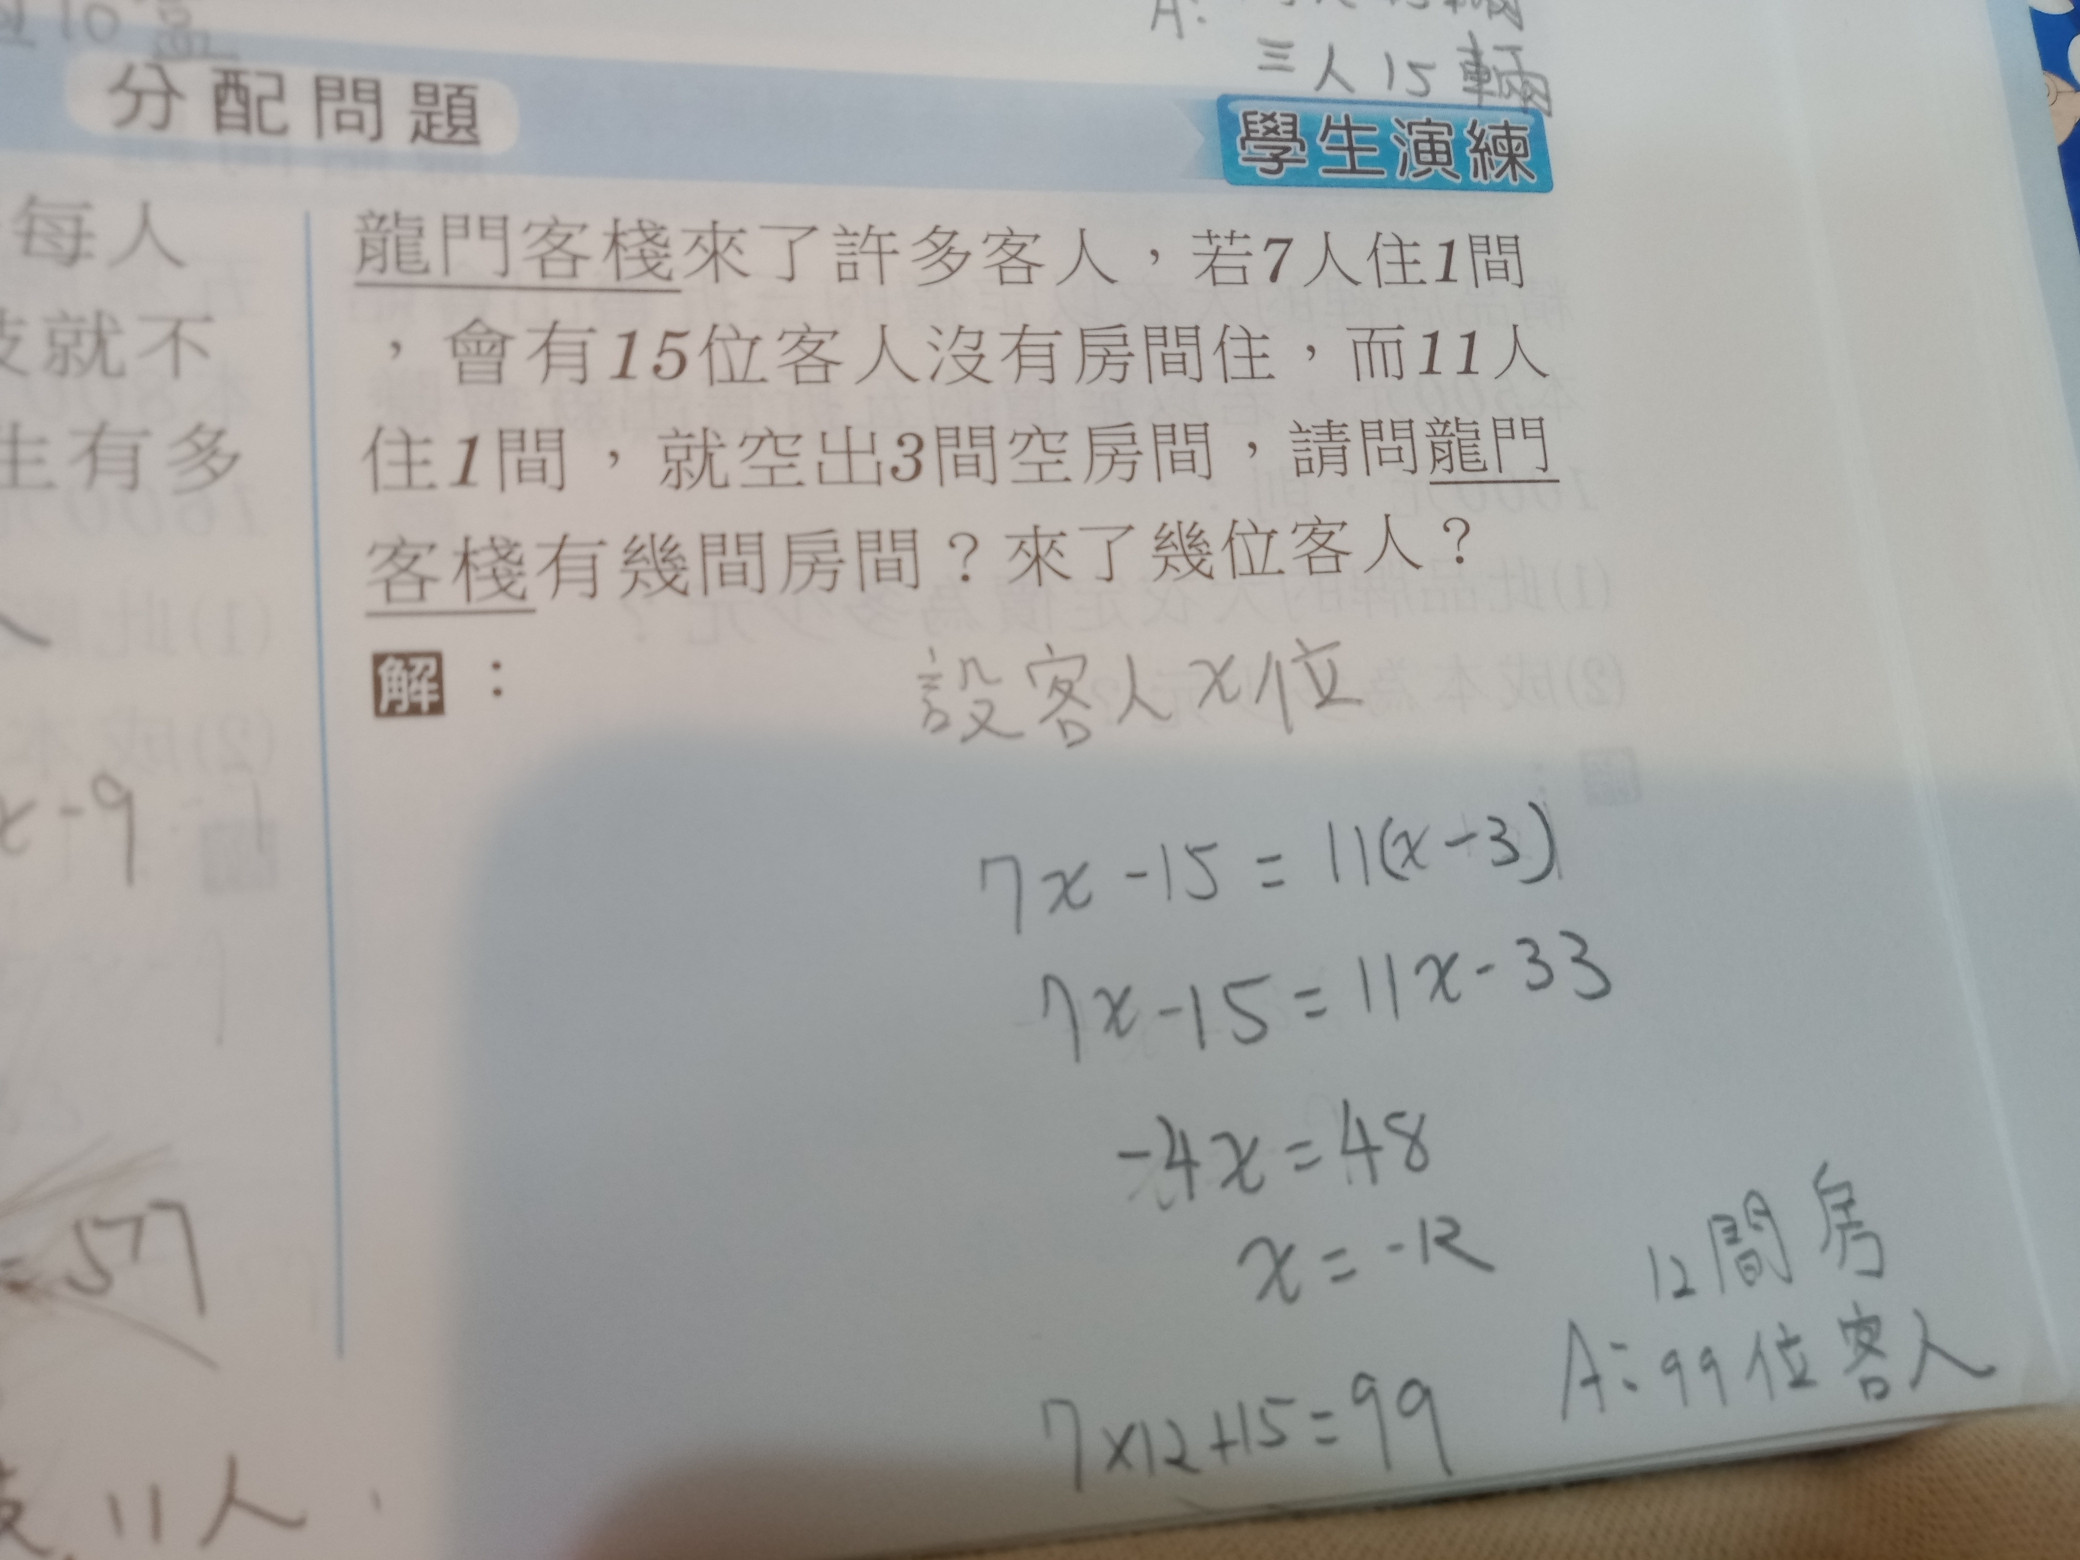 三人15輛
A:
分配問題
學生演練
每人
就不
生有多
x-9
57
11人
龍門客棧來了許多客人，若7人住1間
，會有15位客人沒有房間住，而11人
住1間，就空出3間空房間，請問龍門
客棧有幾間房間？來了幾位客人？
解：
設客人x位
7x-15=11(x-3)
7x-15=11x-33
-4x=48
x=-12
7×12+15=99
12間房
A:99位客人